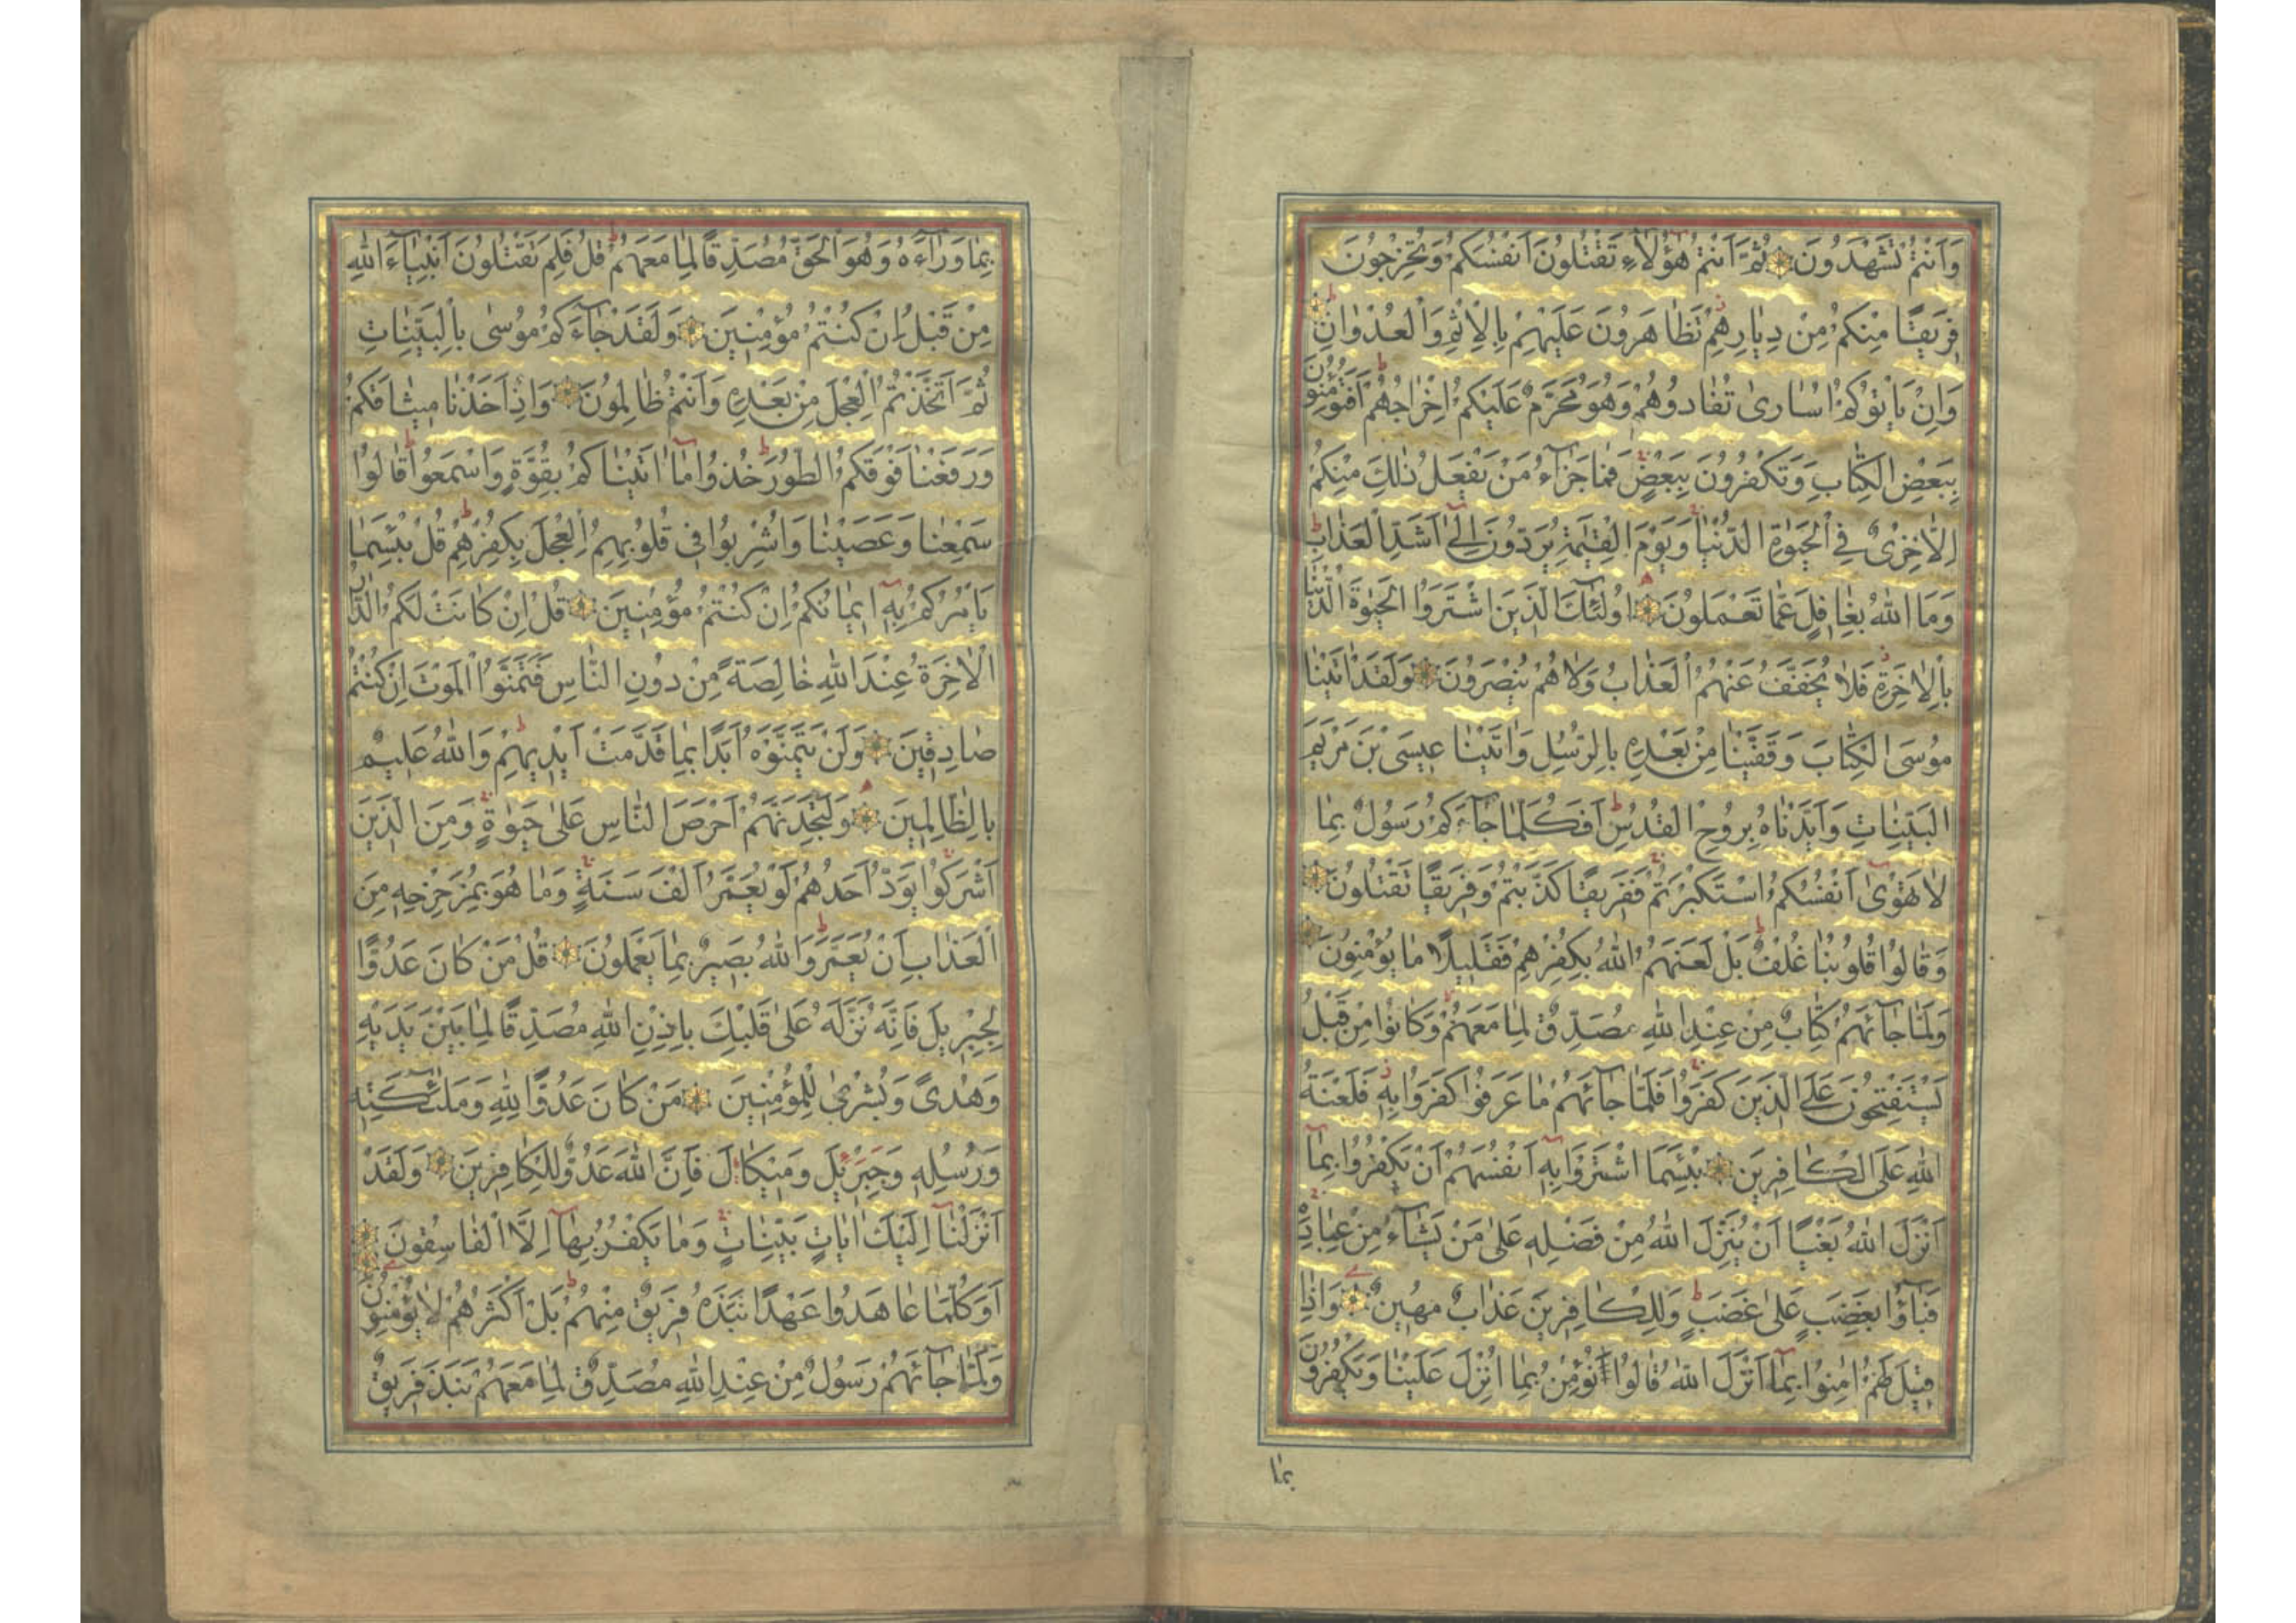 وَاَنْتُمْ تَشْهَدُونَ ثُمَّ اَنْتُمْ هٰؤُلَاۤءِ تَقْتُلُونَ اَنْفُسَكُمْ وَتُخْرِجُونَ
فَرِيقًا مِنْكُمْ مِنْ دِيَارِهِمْ تَظَاهَرُونَ عَلَيْهِمْ بِالْاِثْمِ وَالْعُدْوَانِ
وَاِنْ يَاْتُوكُمْ اُسَارٰى تُفَادُوهُمْ وَهُوَ مُحَرَّمٌ عَلَيْكُمْ اِخْرَاجُهُمْ اَفَتُؤْمِنُونَ
بِبَعْضِ الْكِتَابِ وَتَكْفُرُونَ بِبَعْضٍ فَمَا جَزَاۤءُ مَنْ يَفْعَلُ ذٰلِكَ مِنْكُمْ
اِلَّا خِزْىٌ فِى الْحَيٰوةِ الدُّنْيَا وَيَوْمَ الْقِيٰمَةِ يُرَدُّونَ اِلٰۤى اَشَدِّ الْعَذَابِ
وَمَا اللّٰهُ بِغَافِلٍ عَمَّا تَعْمَلُونَ اُولٰۤئِكَ الَّذِينَ اشْتَرَوُا الْحَيٰوةَ الدُّنْيَا
بِالْاٰخِرَةِ فَلَا يُخَفَّفُ عَنْهُمُ الْعَذَابُ وَلَا هُمْ يُنْصَرُونَ وَلَقَدْ اٰتَيْنَا
مُوسَى الْكِتَابَ وَقَفَّيْنَا مِنْ بَعْدِهِ بِالرُّسُلِ وَاٰتَيْنَا عِيسَى بْنَ مَرْيَمَ
الْبَيِّنَاتِ وَاَيَّدْنَاهُ بِرُوحِ الْقُدُسِ اَفَكُلَّمَا جَاۤءَكُمْ رَسُولٌ بِمَا
لَا تَهْوٰىۤ اَنْفُسُكُمُ اسْتَكْبَرْتُمْ فَفَرِيقًا كَذَّبْتُمْ وَفَرِيقًا تَقْتُلُونَ
وَقَالُوا قُلُوبُنَا غُلْفٌ بَلْ لَعَنَهُمُ اللّٰهُ بِكُفْرِهِمْ فَقَلِيلًا مَا يُؤْمِنُونَ
وَلَمَّا جَاۤئَهُمْ كِتَابٌ مِنْ عِنْدِ اللّٰهِ مُصَدِّقٌ لِمَا مَعَهُمْ وَكَانُوا مِنْ قَبْلُ
يَسْتَفْتِحُونَ عَلَى الَّذِينَ كَفَرُوا فَلَمَّا جَاۤئَهُمْ مَا عَرَفُوا كَفَرُوا بِهِ فَلَعْنَةُ
اللّٰهِ عَلَى الْكَافِرِينَ بِئْسَمَا اشْتَرَوْا بِهِۤ اَنْفُسَهُمْ اَنْ يَكْفُرُوا بِمَاۤ
اَنْزَلَ اللّٰهُ بَغْيًا اَنْ يُنَزِّلَ اللّٰهُ مِنْ فَضْلِهِ عَلٰى مَنْ يَشَاۤءُ مِنْ عِبَادِهِ
فَبَاۤؤُا بِغَضَبٍ عَلٰى غَضَبٍ وَلِلْكَافِرِينَ عَذَابٌ مُهِينٌ وَاِذَا
قِيلَ لَهُمْ اٰمِنُوا بِمَاۤ اَنْزَلَ اللّٰهُ قَالُوا نُؤْمِنُ بِمَاۤ اُنْزِلَ عَلَيْنَا وَيَكْفُرُونَ
بما
بِمَا وَرَاۤءَهُ وَهُوَ الْحَقُّ مُصَدِّقًا لِمَا مَعَهُمْ قُلْ فَلِمَ تَقْتُلُونَ اَنْبِيَاۤءَ اللّٰهِ
مِنْ قَبْلُ اِنْ كُنْتُمْ مُؤْمِنِينَ وَلَقَدْ جَاۤءَكُمْ مُوسٰى بِالْبَيِّنَاتِ
ثُمَّ اتَّخَذْتُمُ الْعِجْلَ مِنْ بَعْدِهِ وَاَنْتُمْ ظَالِمُونَ وَاِذْ اَخَذْنَا مِيثَاقَكُمْ
وَرَفَعْنَا فَوْقَكُمُ الطُّورَ خُذُوا مَاۤ اٰتَيْنَاكُمْ بِقُوَّةٍ وَاسْمَعُوا قَالُوا
سَمِعْنَا وَعَصَيْنَا وَاُشْرِبُوا فِى قُلُوبِهِمُ الْعِجْلَ بِكُفْرِهِمْ قُلْ بِئْسَمَا
يَاْمُرُكُمْ بِهِۤ اِيمَانُكُمْ اِنْ كُنْتُمْ مُؤْمِنِينَ قُلْ اِنْ كَانَتْ لَكُمُ الدَّارُ
الْاٰخِرَةُ عِنْدَ اللّٰهِ خَالِصَةً مِنْ دُونِ النَّاسِ فَتَمَنَّوُا الْمَوْتَ اِنْ كُنْتُمْ
صَادِقِينَ وَلَنْ يَتَمَنَّوْهُ اَبَدًا بِمَا قَدَّمَتْ اَيْدِيهِمْ وَاللّٰهُ عَلِيمٌ
بِالظَّالِمِينَ وَلَتَجِدَنَّهُمْ اَحْرَصَ النَّاسِ عَلٰى حَيٰوةٍ وَمِنَ الَّذِينَ
اَشْرَكُوا يَوَدُّ اَحَدُهُمْ لَوْ يُعَمَّرُ اَلْفَ سَنَةٍ وَمَا هُوَ بِمُزَحْزِحِهِ مِنَ
الْعَذَابِ اَنْ يُعَمَّرَ وَاللّٰهُ بَصِيرٌ بِمَا يَعْمَلُونَ قُلْ مَنْ كَانَ عَدُوًّا
لِجِبْرِيلَ فَاِنَّهُ نَزَّلَهُ عَلٰى قَلْبِكَ بِاِذْنِ اللّٰهِ مُصَدِّقًا لِمَا بَيْنَ يَدَيْهِ
وَهُدًى وَبُشْرٰى لِلْمُؤْمِنِينَ مَنْ كَانَ عَدُوًّا لِلّٰهِ وَمَلٰۤئِكَتِهِ
وَرُسُلِهِ وَجِبْرِيلَ وَمِيكَالَ فَاِنَّ اللّٰهَ عَدُوٌّ لِلْكَافِرِينَ وَلَقَدْ
اَنْزَلْنَاۤ اِلَيْكَ اٰيَاتٍ بَيِّنَاتٍ وَمَا يَكْفُرُ بِهَاۤ اِلَّا الْفَاسِقُونَ
اَوَكُلَّمَا عَاهَدُوا عَهْدًا نَبَذَهُ فَرِيقٌ مِنْهُمْ بَلْ اَكْثَرُهُمْ لَا يُؤْمِنُونَ
وَلَمَّا جَاۤئَهُمْ رَسُولٌ مِنْ عِنْدِ اللّٰهِ مُصَدِّقٌ لِمَا مَعَهُمْ نَبَذَ فَرِيقٌ